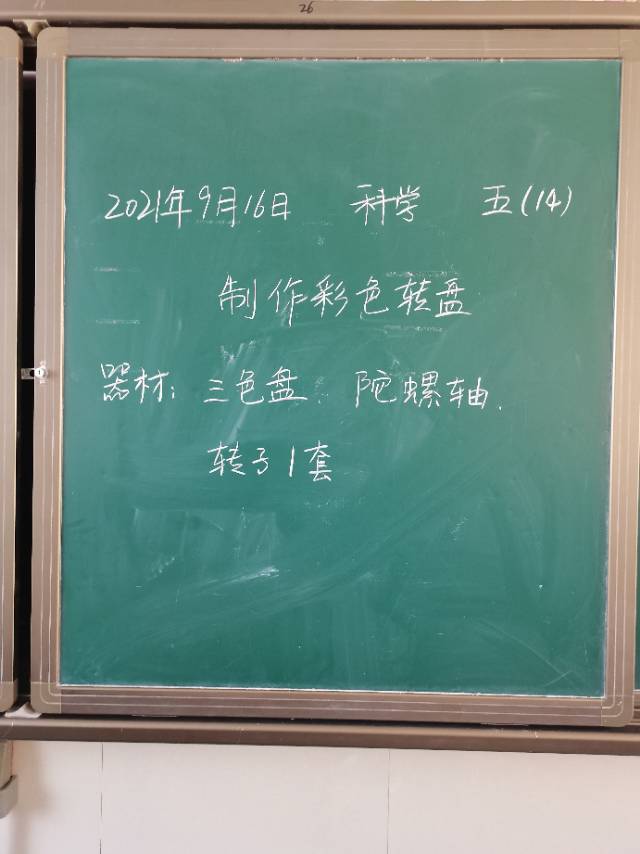 26
2021年9月16日 科学 五(14)
制作彩色转盘
器材: 三色盘 陀螺轴.
转子1套